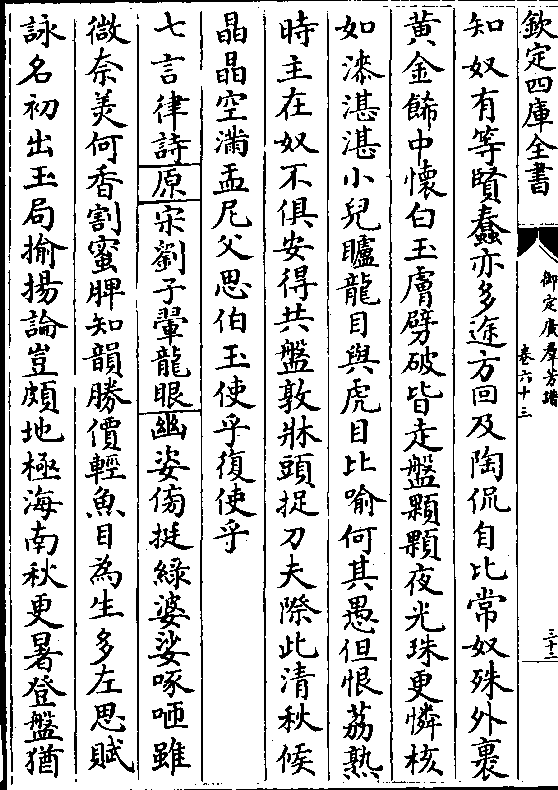 欽定四庫全書
御定廣羣芳譜
卷六十三
三十二
知奴有等賢蠢亦多途方回及陶侃自比常奴殊外裹
黃金飾中懷白玉膚劈破皆走盤顆顆夜光珠更憐核
如漆湛湛小兒矑龍目與虎目比喻何其愚但恨荔熟
時主在奴不俱安得共盤敦牀頭捉刀夫際此清秋候
晶晶空滿盂尼父思伯玉使乎復使乎
七言律詩原宋劉子翬龍眼幽姿傍挺綠婆娑啄咂雖
微奈美何香割蜜脾知韻勝價輕魚目為生多左思賦
詠名初出玉局揄揚論豈頗地極海南秋更暑登盤猶